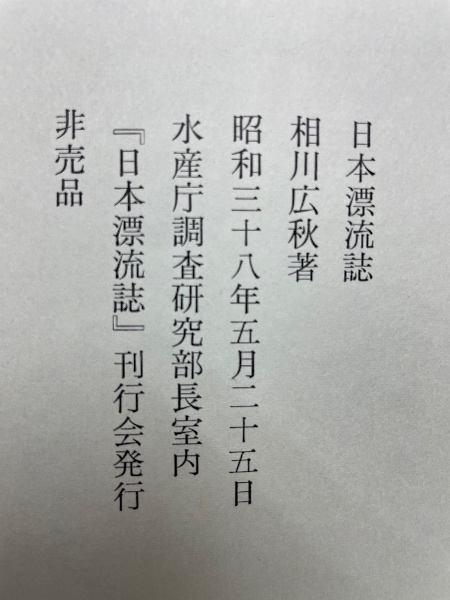 日本漂流誌
相川広秋著
昭和三十八年五月二十五日
水産庁調査研究部長室内
『日本漂流誌』刊行会発行
非売品